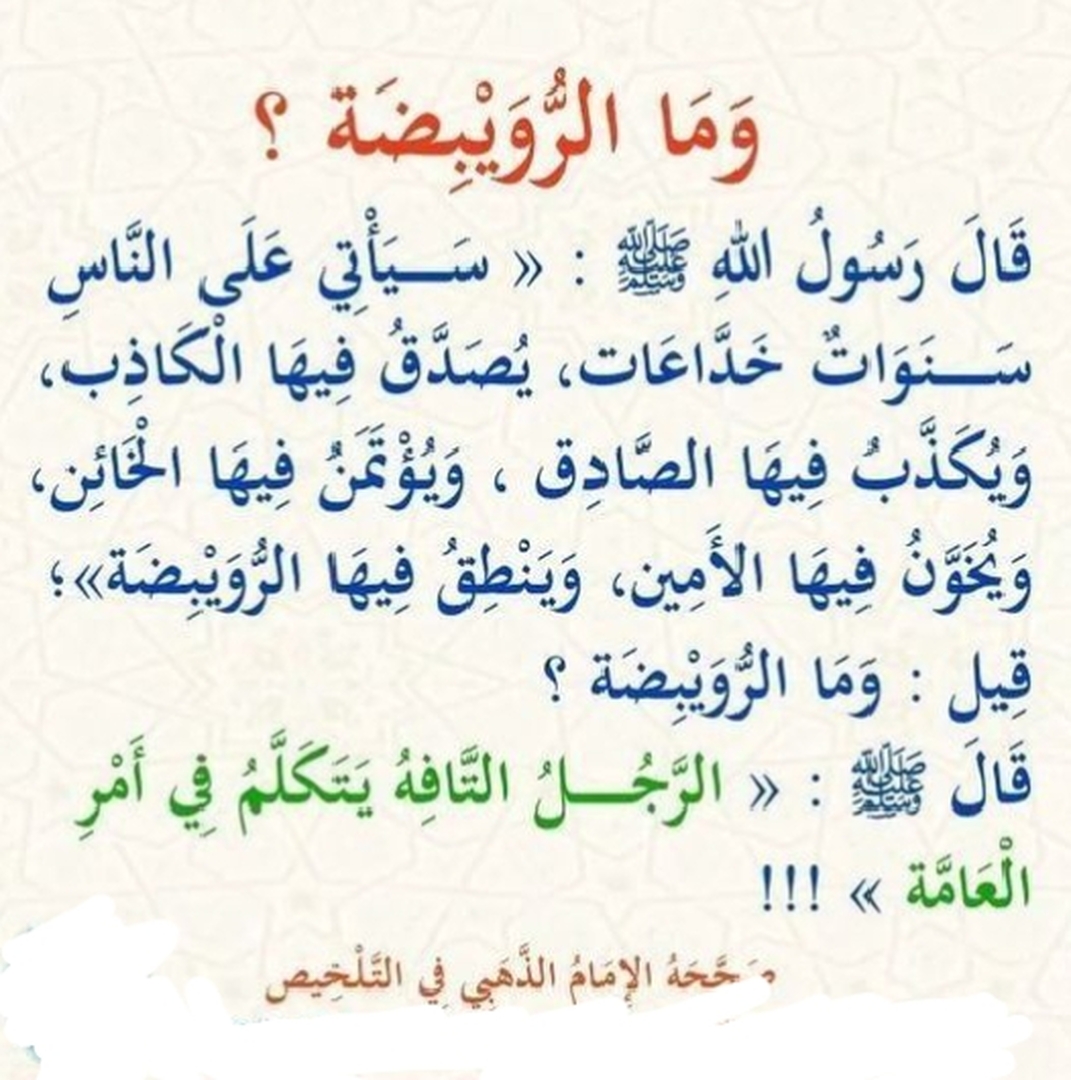 وَمَا الرُّوَيْبِضَة ؟
قَالَ رَسُولُ اللهِ ﷺ : « سَـــيَأْتِي عَلَى النَّاسِ
سَـــنَوَاتٌ خَدَّاعَات، يُصَدَّقُ فِيهَا الْكَاذِب،
وَيُكَذَّبُ فِيهَا الصَّادِق ، وَيُؤْتَمَنُ فِيهَا الْخَائِن،
وَيُخَوَّنُ فِيهَا الأَمِين، وَيَنْطِقُ فِيهَا الرُّوَيْبِضَة»؛
قِيل : وَمَا الرُّوَيْبِضَة ؟
قَالَ ﷺ : « الرَّجُـــلُ التَّافِهُ يَتَكَلَّمُ فِي أَمْرِ
الْعَامَّة » !!!
صَحَّحَهُ الإِمَامُ الذَّهَبِي فِي التَّلْخِيص